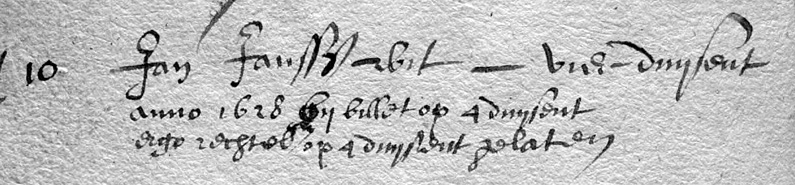 10 Jan Janssz wit — vier duijsent
anno 1628 bij billet op 4 duijsent
ergo rechtel op 4 duijsent gelaten